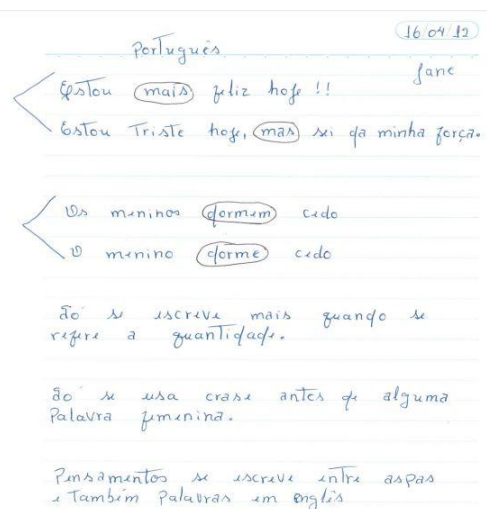 16/04/12
Português
Jane
Estou mais feliz hoje !!
Estou Triste hoje, mas sei da minha força.
Os meninos dormem cedo
O menino dorme cedo
So se escreve mais quando se
refere a quantidade.
So se usa crase antes de alguma
Palavra femenina.
Pensamentos se escreve entre aspas
e Também Palavras em englis